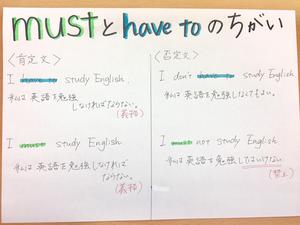 mustとhave toのちがい
〈肯定文〉
I have to study English.
私は英語を勉強
しなければならない。
(義務)
I must study English
私は英語を勉強しなければ
ならない。
(義務)
〈否定文〉
I don't have to study English.
私は英語を勉強しなくてもよい。
I must not study English
私は英語を勉強してはいけない
(禁止)